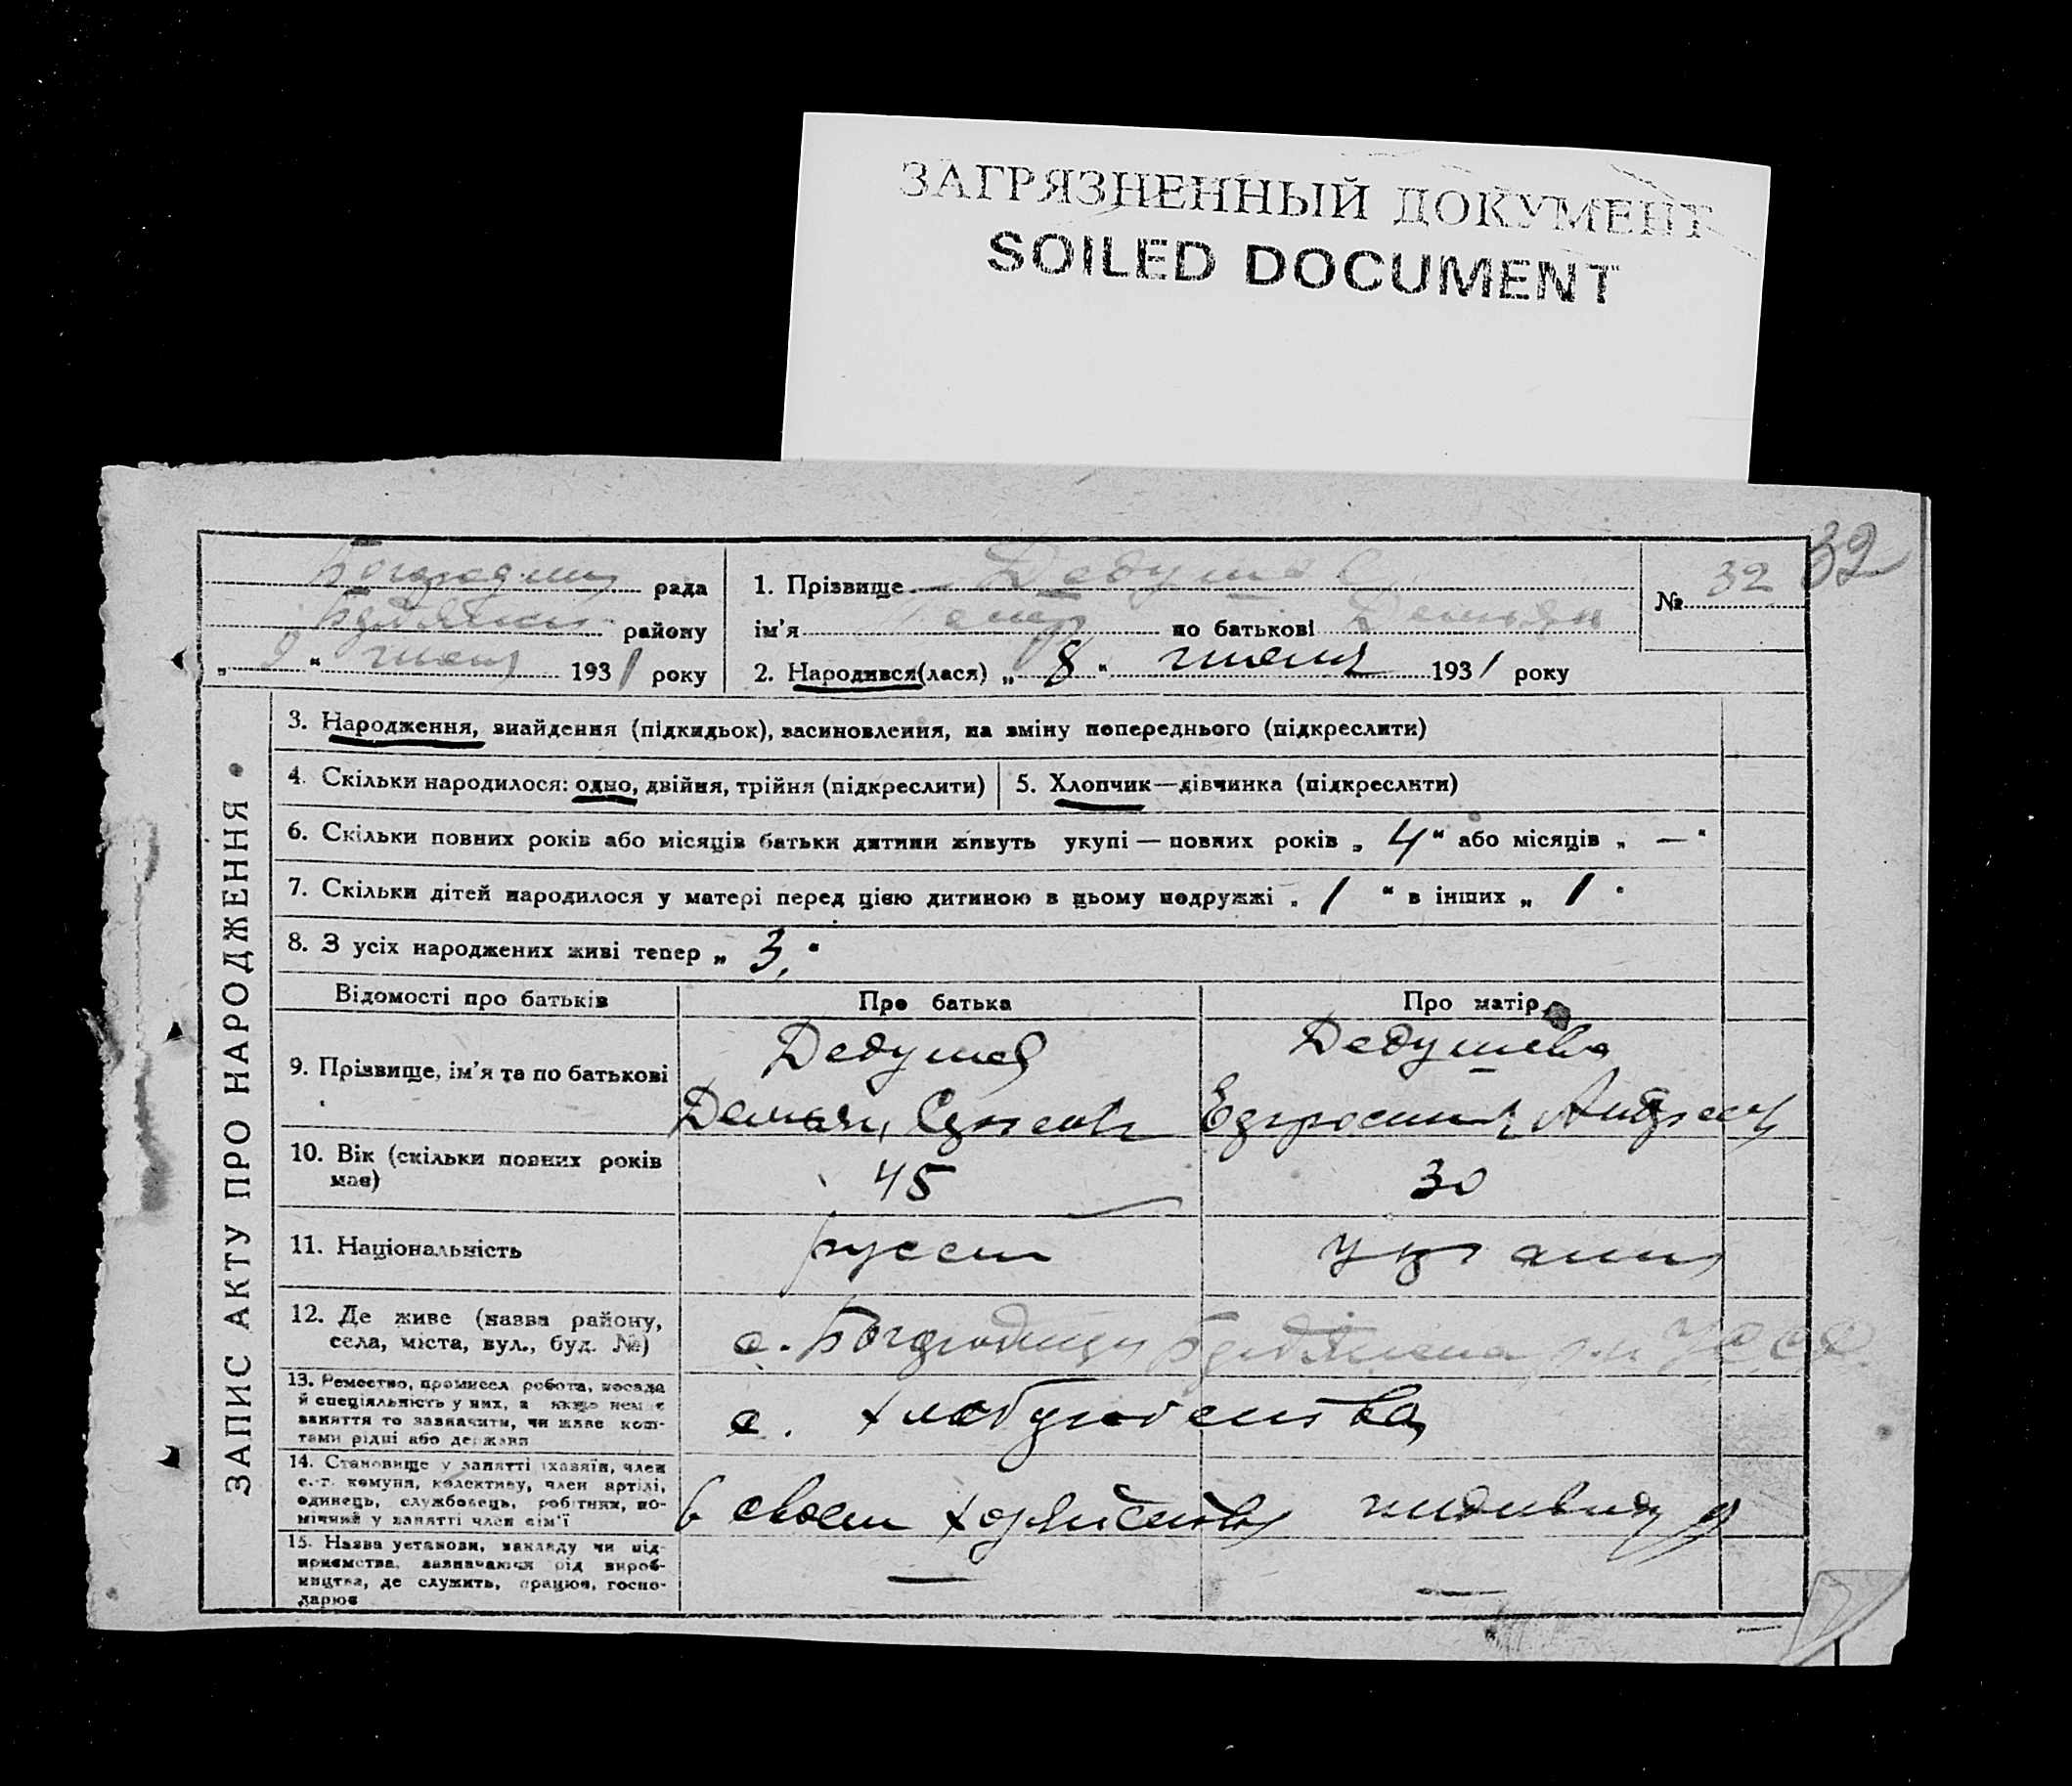 ЗАГРЯЗНЕННЫЙ ДОКУМЕНТ
SOILED DOCUMENT
32
рада
району
„ 9 “ июня 1931 року
1. Прізвище Дедушев
ім'я Петр по батькові Демьян
№ 32
2. Народився(лася) „ 8 “ июня 1931 року
ЗАПИС АКТУ ПРО НАРОДЖЕННЯ
3. Народження, знайдення (підкидьок), засиновлення, на зміну попереднього (підкреслити)
4. Скільки народилося: одно, двійня, трійня (підкреслити)
5. Хлопчик—дівчинка (підкреслити)
6. Скільки повних років або місяців батьки дитини живуть укупі — повних років „ 4 “ або місяців „ — “
7. Скільки дітей народилося у матері перед цією дитиною в цьому подружжі „ 1 “ в інших „ 1 “
8. З усіх народжених живі тепер „ 3 “
Відомості про батьків
Про батька
Про матір
9. Прізвище, ім'я та по батькові
Дедушев
Демьян
Дедушева
Ефросиния Андреев
10. Вік (скільки повних років має)
45
30
11. Національність
русск
украин
12. Де живе (назва району,
села, міста, вул., буд. №)
с.
13. Ремество, промисел робота, посада
й спеціяльність у них, а якщо немає
заняття то зазначити, чи живе кош-
тами рідні або держави
с. хлебуробства
14. Становище у занятті (хазяїн, член
с.-г. комуни, колективу, член артілі,
одинець, службовець, робітник, по-
мічний у занятті член сім'ї
в своем хозяйстве
15. Назва установи, закладу чи під-
приємства, зазначаючи рід вироб-
ництва, де служить, працює, госпо-
дарює
—
—